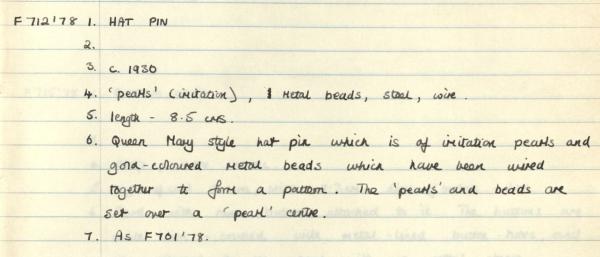 F 712'78 1. HAT PIN
2.
3. c. 1930
4. 'pearls' (imitation), metal beads, steel, wire.
5. length - 8.5 cms.
6. Queen Mary style hat pin which is of imitation pearls and
gold-coloured metal beads which have been wired
together to form a pattern. The 'pearls' and beads are
set over a 'pearl' centre.
7. As F701'78.